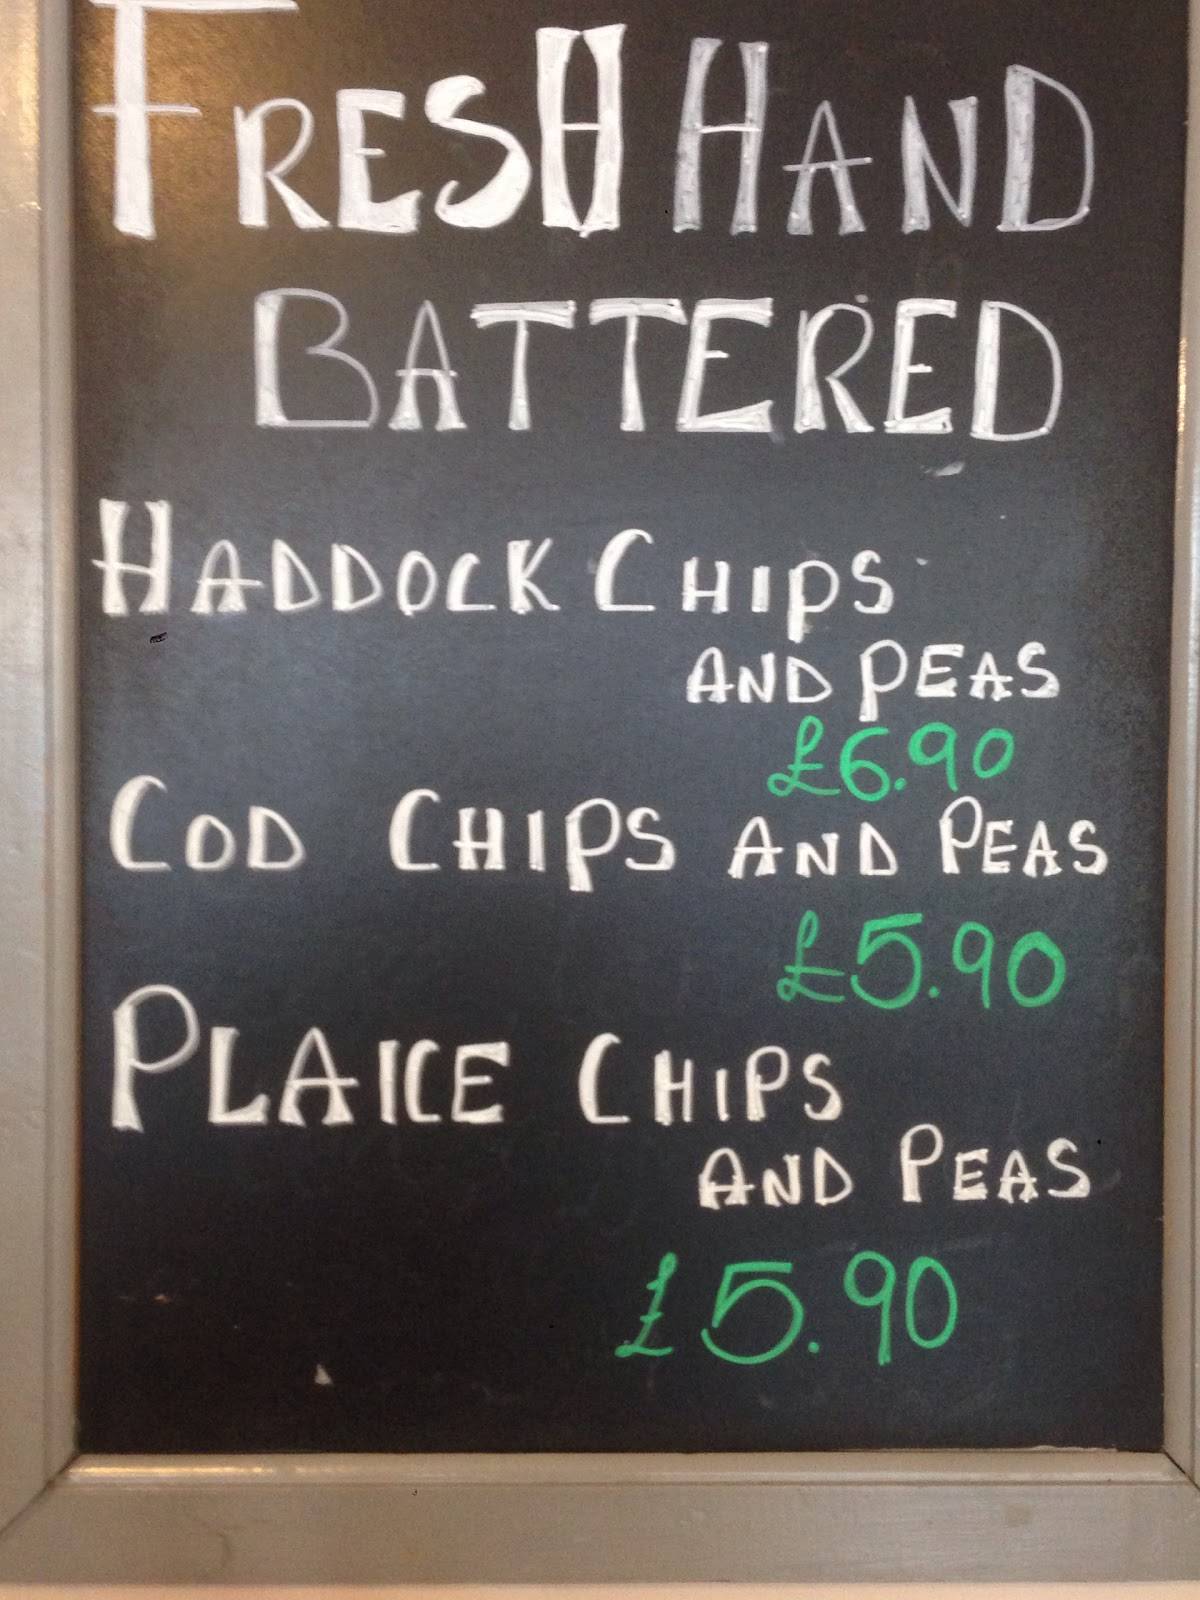 FRESH HAND
BATTERED
HADDOCK CHIPS
AND PEAS
£6.90
COD CHIPS AND PEAS
£5.90
PLAICE CHIPS
AND PEAS
£5.90